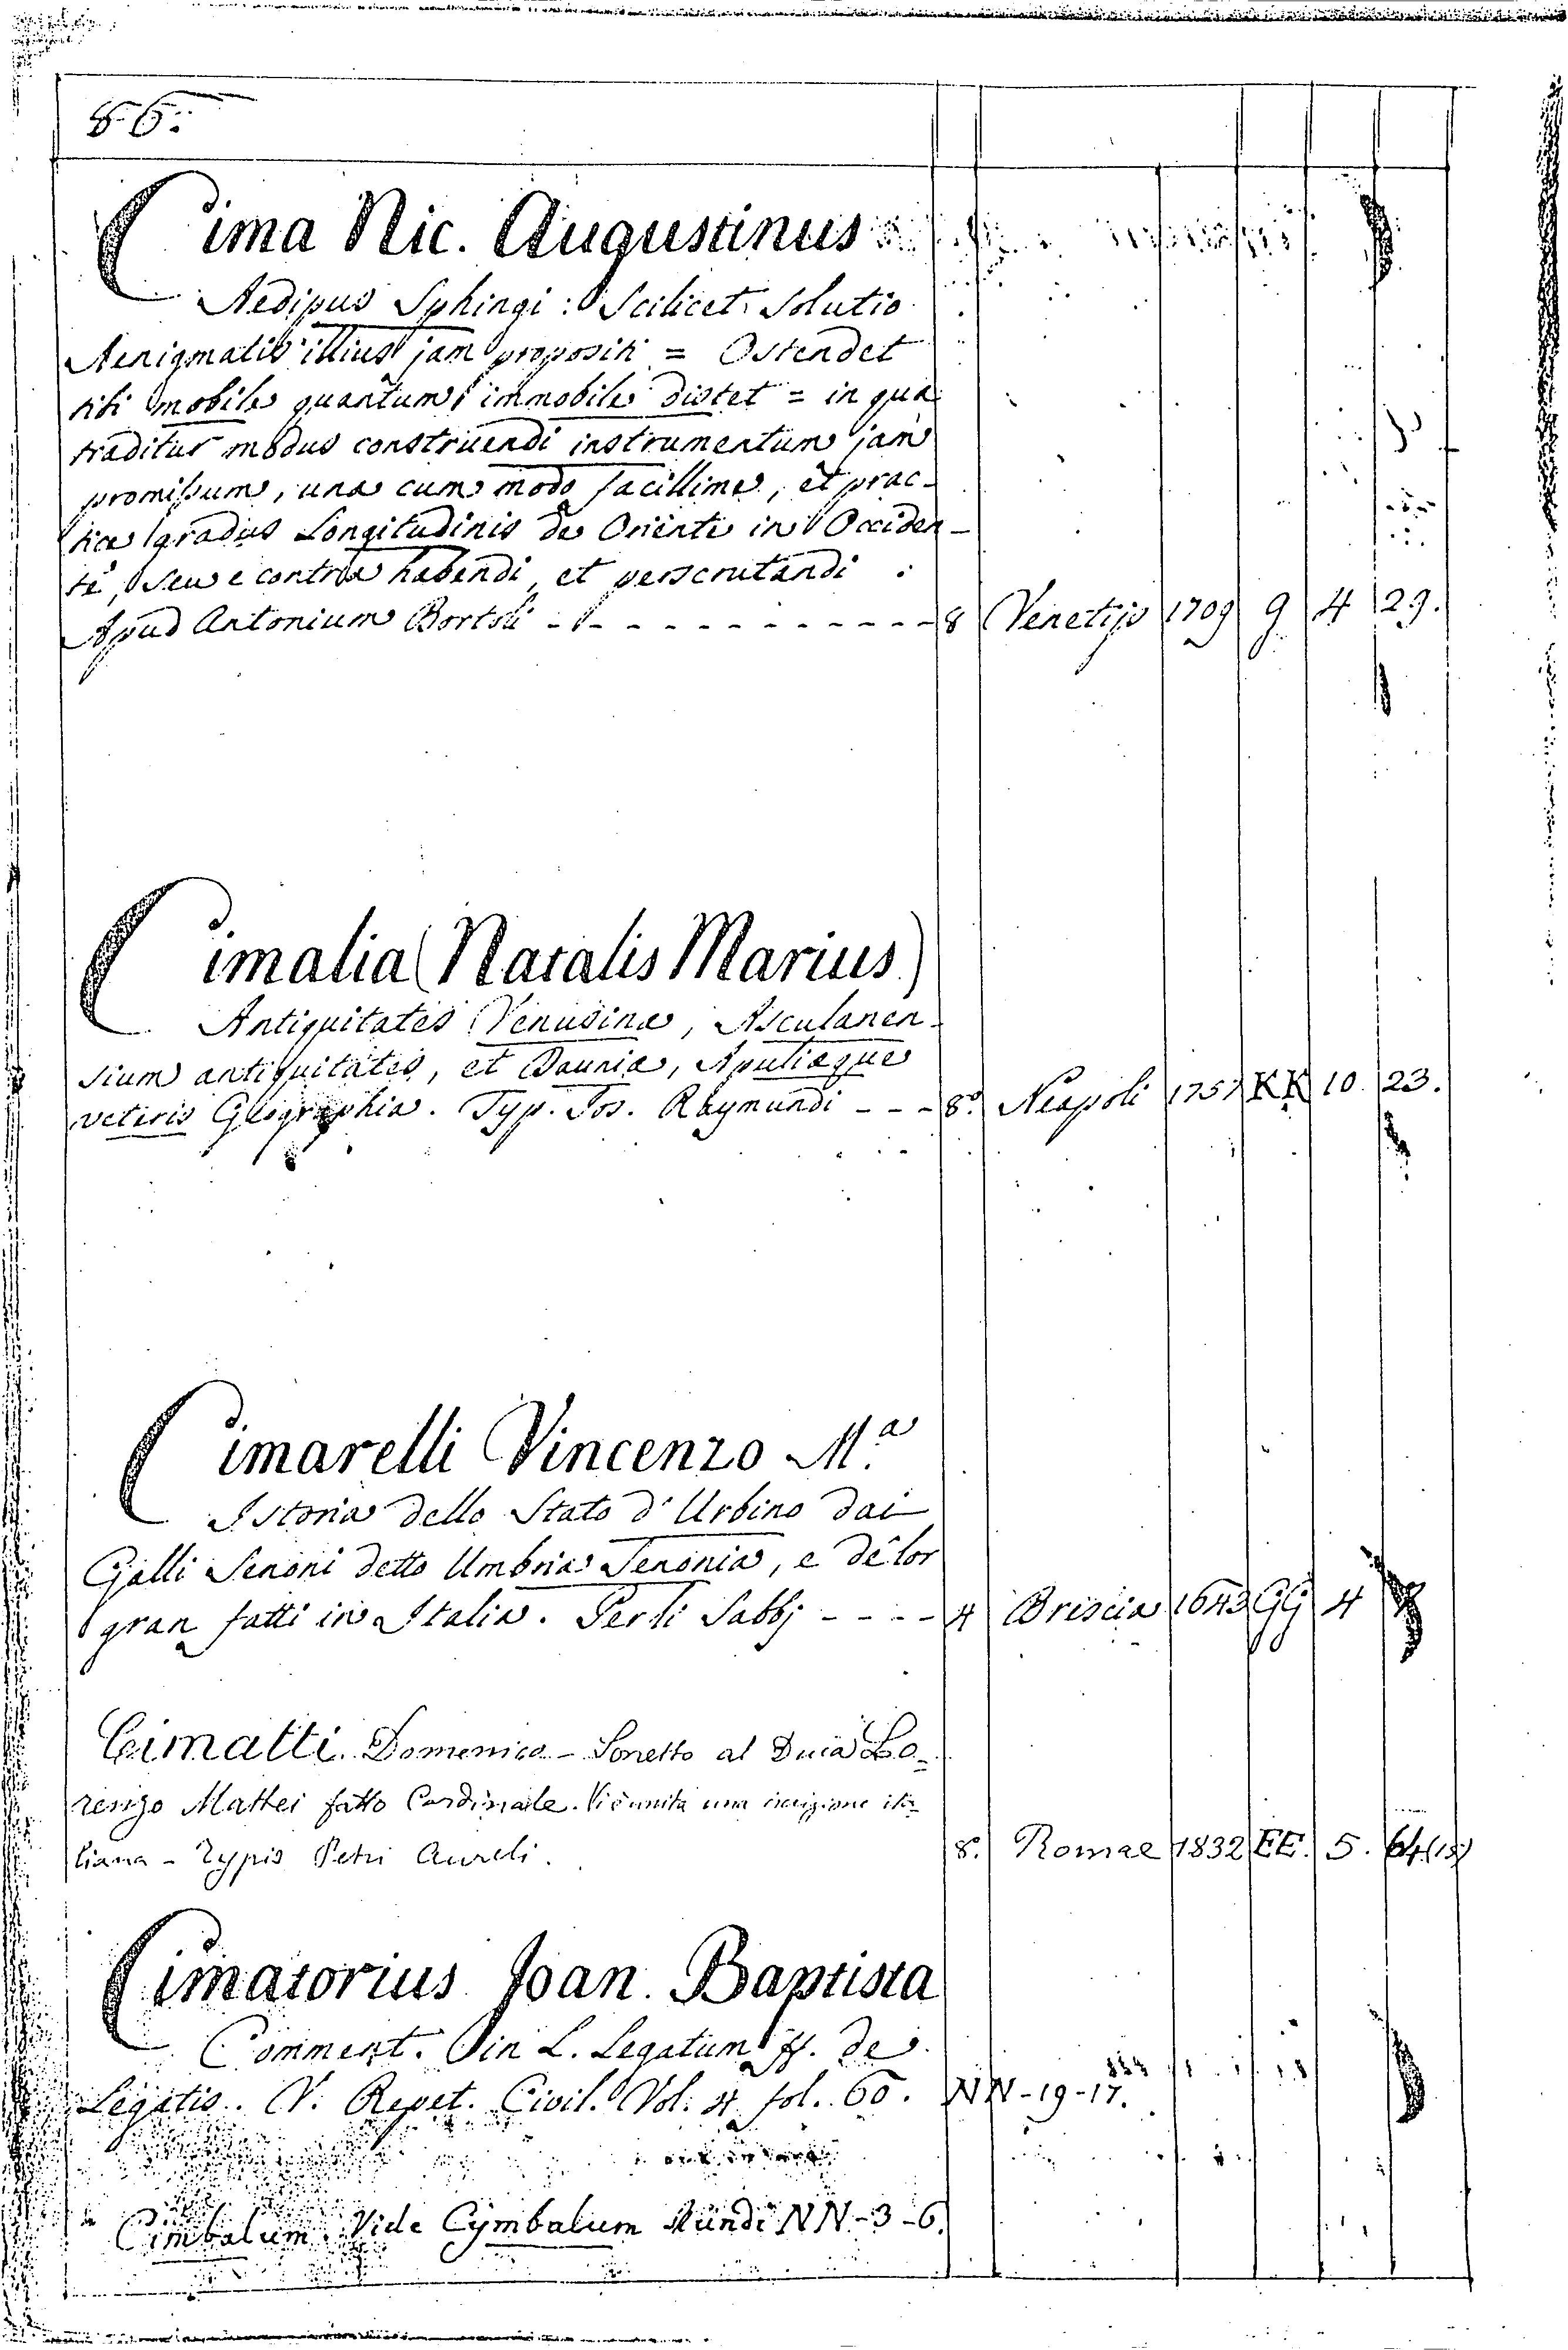 86.
Cima Nic. Augustinus
Aedipus Sphingi: Scilicet Solutio
Aenigmatis illius jam propositi = Ostendet
tibi mobile quantum immobile distet = in qua
traditur modus construendi instrumentum jam
promissum, una cum modo facillime, et prac-
tice gradus Longitudinis de Oriente in Occiden-
te, seu e contra habendi, et perscrutandi :
Apud Antonium Bortoli - - - - - - - - - - - - 8 Venetijs 1709 g 4 29.
Cimalia (Natalis Marius)
Antiquitates Venusinæ, Asculanen-
sium antiquitates, et Dauniæ, Apuliæque
veteris Geographia. Typ. Jos. Raymundi - - - 8.º Neapoli 1757 KK 10. 23.
Cimarelli Vincenzo M.ª
Istoria dello Stato d'Urbino dai
Galli Senoni detto Umbria Senonia, e de lor
gran fatti in Italia. Per li Sabbj - - - - 4 Briscia 1643 GG 4
Cimatti. Domenico - Sonetto al Duca Lo-
renzo Mattei fatto Cardinale. Vi è unita una iscrizione ita-
liana - Typis Petri Aureli. 8.º Romae 1832 EE. 5. 64(15)
Cimatorius Joan. Baptista
Comment. in L. Legatum ff. de
Legatis. V. Repet. Civil. Vol. 4 fol. 60. NN-19-17.
Cimbalum. Vide Cymbalum Mundi NN-3-6.